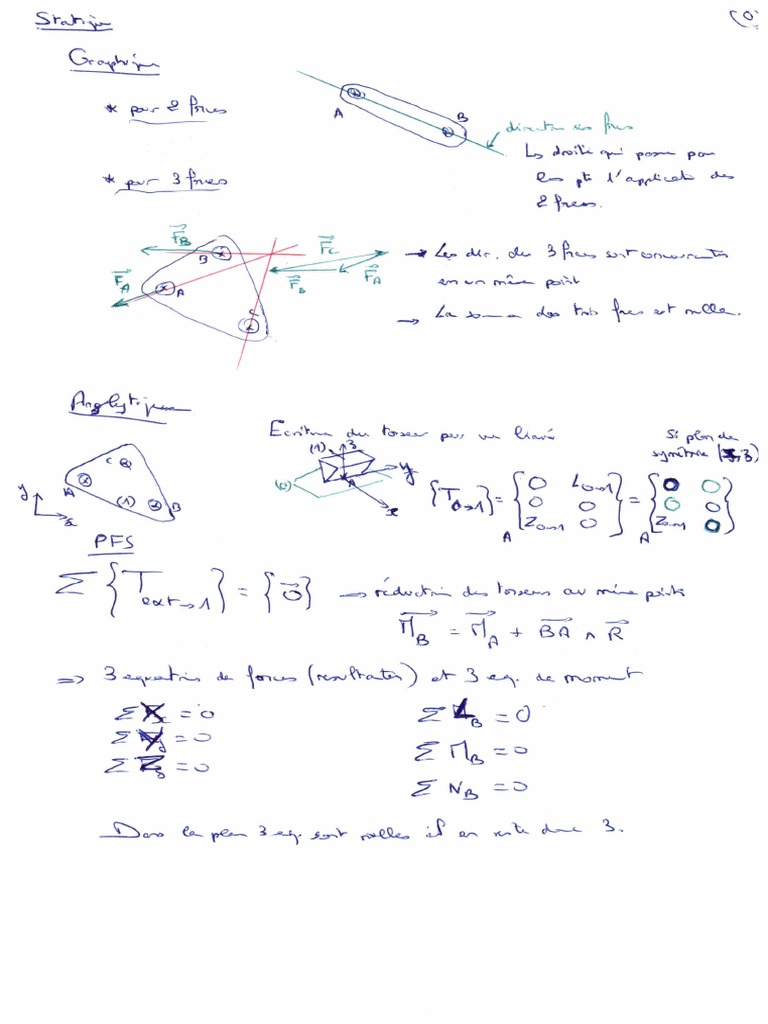 Statique
Graphique
* pour 2 forces
A
B
direction des forces
La droite qui passe par
les pts d'application des
2 forces.
* pour 3 forces
F_B
F_C
F_A
B
F_A
A
F_B
C
→ Les dir. des 3 forces sont concourantes
en un même point
→ La somme des trois forces est nulle.
Analytique
Ecriture du torseur pour une liaison
Si plan de
symétrie
C
A
(1)
B
y
x
(1)
z
(0)
y
A
x
{T_0→1} = { 0 L_0→1 } = { 0 0 }
0 0 0 0
Z_0→1 0 Z_0→1 0
A A
PFS
Σ {T_ext→1} = {0} → réduction des torseurs au même point
M_B = M_A + BA ∧ R
=> 3 equations de forces (resultantes) et 3 eq. de moment
Σ X = 0 Σ L_B = 0
Σ Y = 0 Σ M_B = 0
Σ Z = 0 Σ N_B = 0
Dans le plan 3 eq. sont nulles il en reste donc 3.